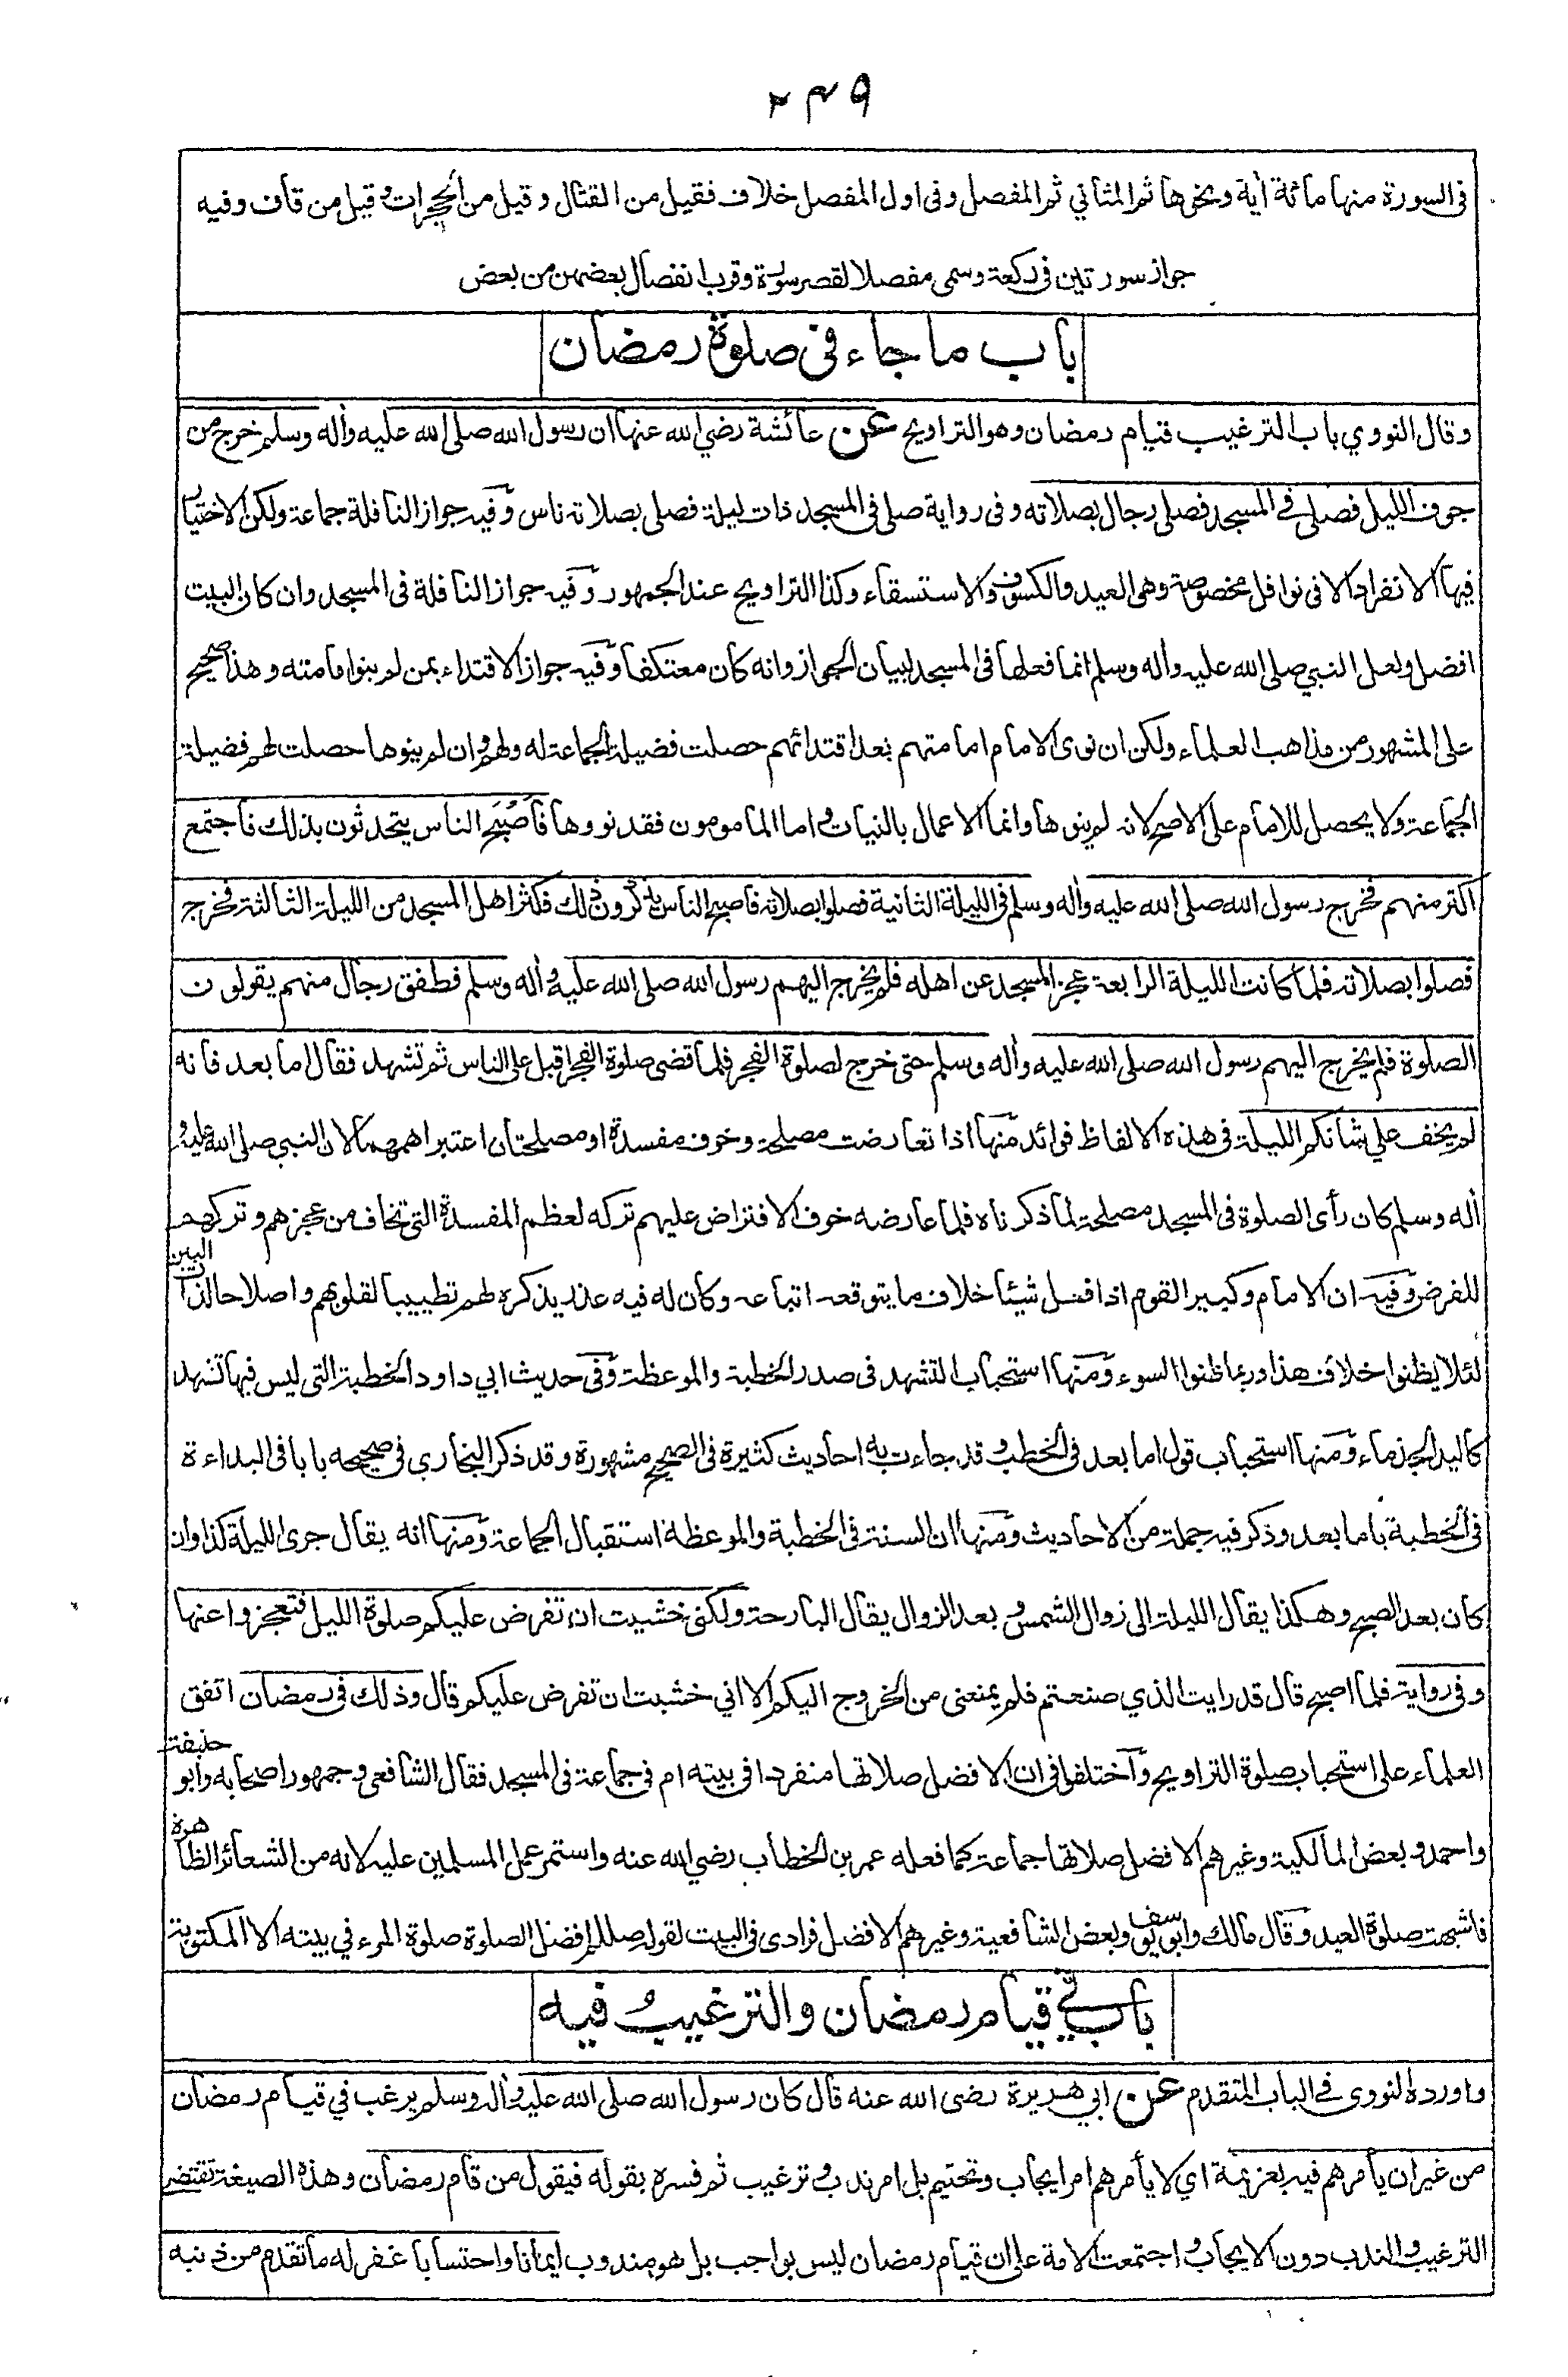 ٢٤٩
فى السورة منها مائة أية ونحوها ثم المثاني ثم المفصل وفى اول المفصل خلاف فقيل من القتال وقيل من الحجرات وقيل من قاف وفيه
جواز سورتين فى ركعة وسمى مفصلا لقصر سوره وقرب انفصال بعضهن من بعض
باب ما جاء فى صلوة رمضان
وقال النووي باب الترغيب قيام رمضان وهو التراويح عن عائشة رضي الله عنها ان رسول الله صلى الله عليه وأله وسلم خرج من
جوف الليل فصلى في المسجد فصلى رجال بصلاته وفى رواية صلى فى المسجد ذات ليلة فصلى بصلاته ناس وفيه جواز النافلة جماعة ولكن الاختيار
فيها الانفراد الا فى نوافل مخصوصة وهى العيد والكسوف والاستسقاء وكذا التراويح عند الجمهور وفيه جواز النافلة فى المسجد وان كان البيت
افضل ولعل النبي صلى الله عليه وأله وسلم انما فعلها فى المسجد لبيان الجواز وانه كان معتكفا وفيه جواز الاقتداء بمن لم ينوا مامته وهذا صحيح
على المشهور من مذاهب العلماء ولكن ان نوى الامام امامتهم بعد اقتدائهم حصلت فضيلة الجماعة له ولهم وان لم ينوها حصلت لهم فضيلة
الجماعة ولا يحصل للامام على الاصح لانه لم ينوها وانما الاعمال بالنيات واما المأمومون فقد نووها فأصبح الناس يتحدثون بذلك فاجتمع
اكثر منهم فخرج رسول الله صلى الله عليه وأله وسلم فى الليلة الثانية فصلوا بصلاته فاصبح الناس يذكرون ذلك فكثر اهل المسجد من الليلة الثالثة فخرج
فصلوا بصلاته فلما كانت الليلة الرابعة عجز المسجد عن اهله فلم يخرج اليهم رسول الله صلى الله عليه وأله وسلم فطفق رجال منهم يقولون
الصلوة فلم يخرج اليهم رسول الله صلى الله عليه وأله وسلم حتى خرج لصلوة الفجر فلما قضى صلوة الفجر اقبل على الناس ثم تشهد فقال اما بعد فانه
لم يخف علي شأنكم الليلة فى هذه الالفاظ فوائد منها اذا تعارضت مصلحة وخوف مفسدة او مصلحتان اعتبر اهمهما لان النبي صلى الله عليه و
أله وسلم كان رأى الصلوة فى المسجد مصلحة لما ذكرناه فلما عارضه خوف الافتراض عليهم تركه لعظم المفسدة التى تخاف من عجزهم وتركهم
للفرض وفيه ان الامام وكبير القوم اذا فعل شيئا خلاف ما يتوقعه اتباعه وكان له فيه عذر يذكره لهم تطييبا لقلوبهم واصلاحا لذات البين
لئلا يظنوا خلاف هذا وربما ظنوا السوء ومنها استحباب التشهد فى صدر الخطبة والموعظة وفى حديث ابي داود الخطبة التى ليس فيها تشهد
كاليد الجذماء ومنها استحباب قول اما بعد فى الخطب وقد جاءت به احاديث كثيرة فى الصحيح مشهورة وقد ذكر البخاري فى صحيحه بابا فى البداءة
فى الخطبة باما بعد وذكر فيه جملة من الاحاديث ومنها ان السنة فى الخطبة والموعظة استقبال الجماعة ومنها انه يقال جرى الليلة كذا وان
كان بعد الصبح وهكذا يقال الليلة الى زوال الشمس وبعد الزوال يقال البارحة ولكنى خشيت ان تفرض عليكم صلوة الليل فتعجزوا عنها
وفى رواية فلما اصبح قال قد رايت الذي صنعتم فلم يمنعنى من الخروج اليكم الا اني خشيت ان تفرض عليكم قال وذلك فى رمضان اتفق
العلماء على استحباب صلوة التراويح واختلفوا فى ان الافضل صلاتها منفردا فى بيته ام في جماعة فى المسجد فقال الشافعى وجمهور اصحابه وابو حنيفة
واحمد وبعض المالكية وغيرهم الافضل صلاتها جماعة كما فعله عمر بن الخطاب رضي الله عنه واستمر عمل المسلمين عليه لانه من الشعائر الظاهرة
فاشبهت صلوة العيد وقال مالك وابو يوسف وبعض الشافعية وغيرهم الافضل فرادى فى البيت لقوله صللم افضل الصلوة صلوة المرء في بيته الا المكتوبة
باب في قيام رمضان والترغيب فيه
واورده النووى في الباب المتقدم عن ابي هريرة رضى الله عنه قال كان رسول الله صلى الله عليه وأله وسلم يرغب في قيام رمضان
من غير ان يأمرهم فيه بعزيمة اي لا يأمرهم امر ايجاب وتحتيم بل امر ندب وترغيب ثم فسره بقوله فيقول من قام رمضان وهذه الصيغة تقتضى
الترغيب والندب دون الايجاب واجتمعت الامة على ان قيام رمضان ليس بواجب بل هو مندوب ايمانا واحتسابا غفر له ما تقدم من ذنبه